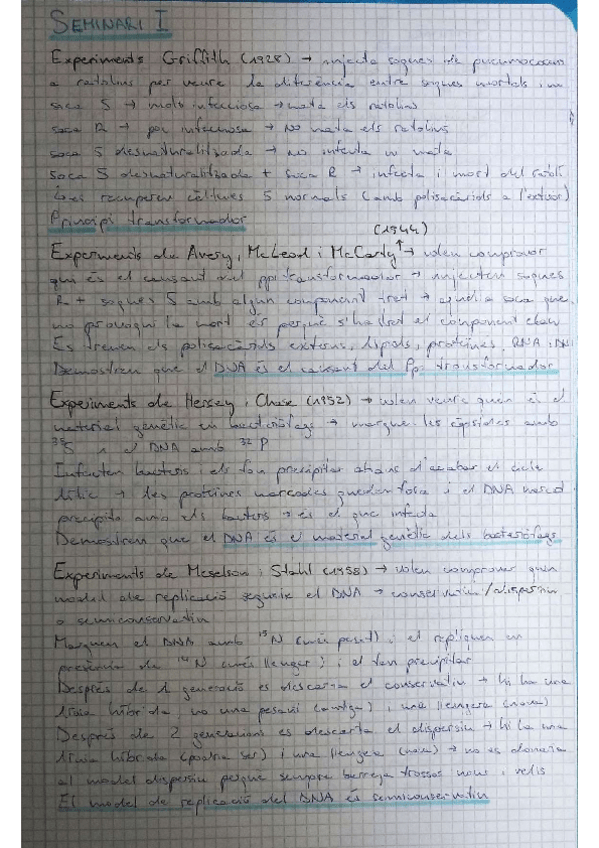 SEMINARI I
Experiments Griffith (1928) → injecta soques de pneumococos
a ratolins per veure la diferència entre soques mortals i no
soca S → molt infecciosa → mata els ratolins
soca R → poc infecciosa → No mata els ratolins
soca S desnaturalitzada → no infecta ni mata
soca S desnaturalitzada + soca R → infecta i mort del ratolí
recuperen cultures S normals (amb polisacàrids a l'exterior)
Principi transformador
(1944)
Experiments de Avery, McLeod i McCarty → volen comprovar
qui és el causant del ppi transformador → injecten soques
R + soques S amb algun component tret → aquella soca que
no provoqui la mort és perquè s'ha tret el component clau
Es treuen els polisacàrids externs, lípids, proteïnes, RNA i DNA
Demostren que el DNA és el causant del Ppi transformador
Experiments de Hersey i Chase (1952) → volen veure quin és el
material genètic en bacteriòfags → marquen les càpsides amb
³⁵S i el DNA amb ³²P
Infecten bacteris i els fan precipitar abans d'acabar el cicle
lític → les proteïnes marcades queden fora i el DNA marcat
precipita amb els bacteris → és el que infecta
Demostren que el DNA és el material genètic dels bacteriòfags
Experiments de Meselson i Stahl (1958) → volen comprovar quin
model de replicació segueix el DNA → conservatiu/dispersiu
o semiconservatiu
Marquen el DNA amb ¹⁵N (més pesat) i el repliquen en
presència de ¹⁴N (més lleuger) i el fan precipitar
Després de 1 generació es descarta el conservatiu → hi ha una
línia híbrida, no una pesant (antiga) i una lleugera (nova)
Després de 2 generacions es descarta el dispersiu → hi ha una
línia híbrida (podria ser) i una lleugera (nova) → no es donaria
al model dispersiu perquè sempre barreja trossos nous i vells
El model de replicació del DNA és semiconservatiu